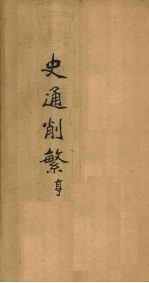 史通削繁 亨